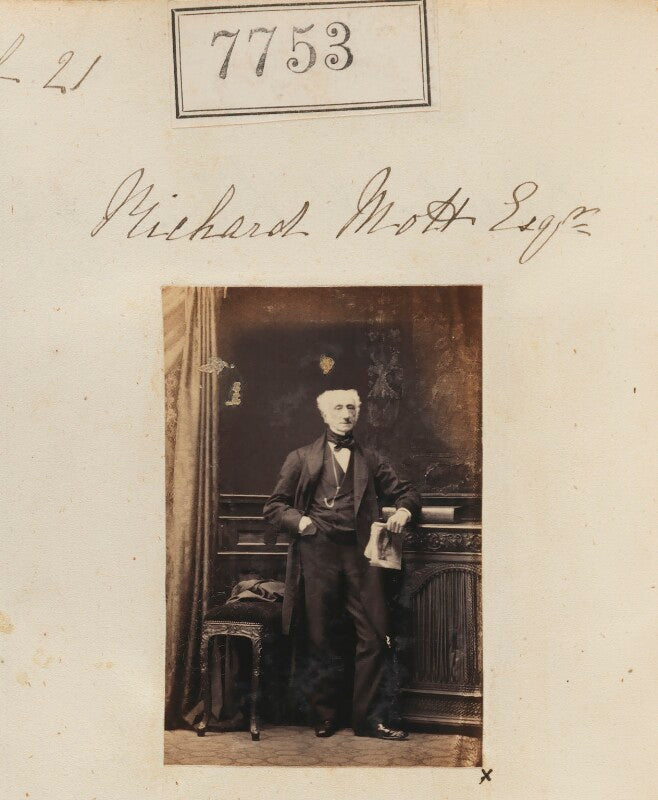 7753
21
Richard Mott Esqre
x